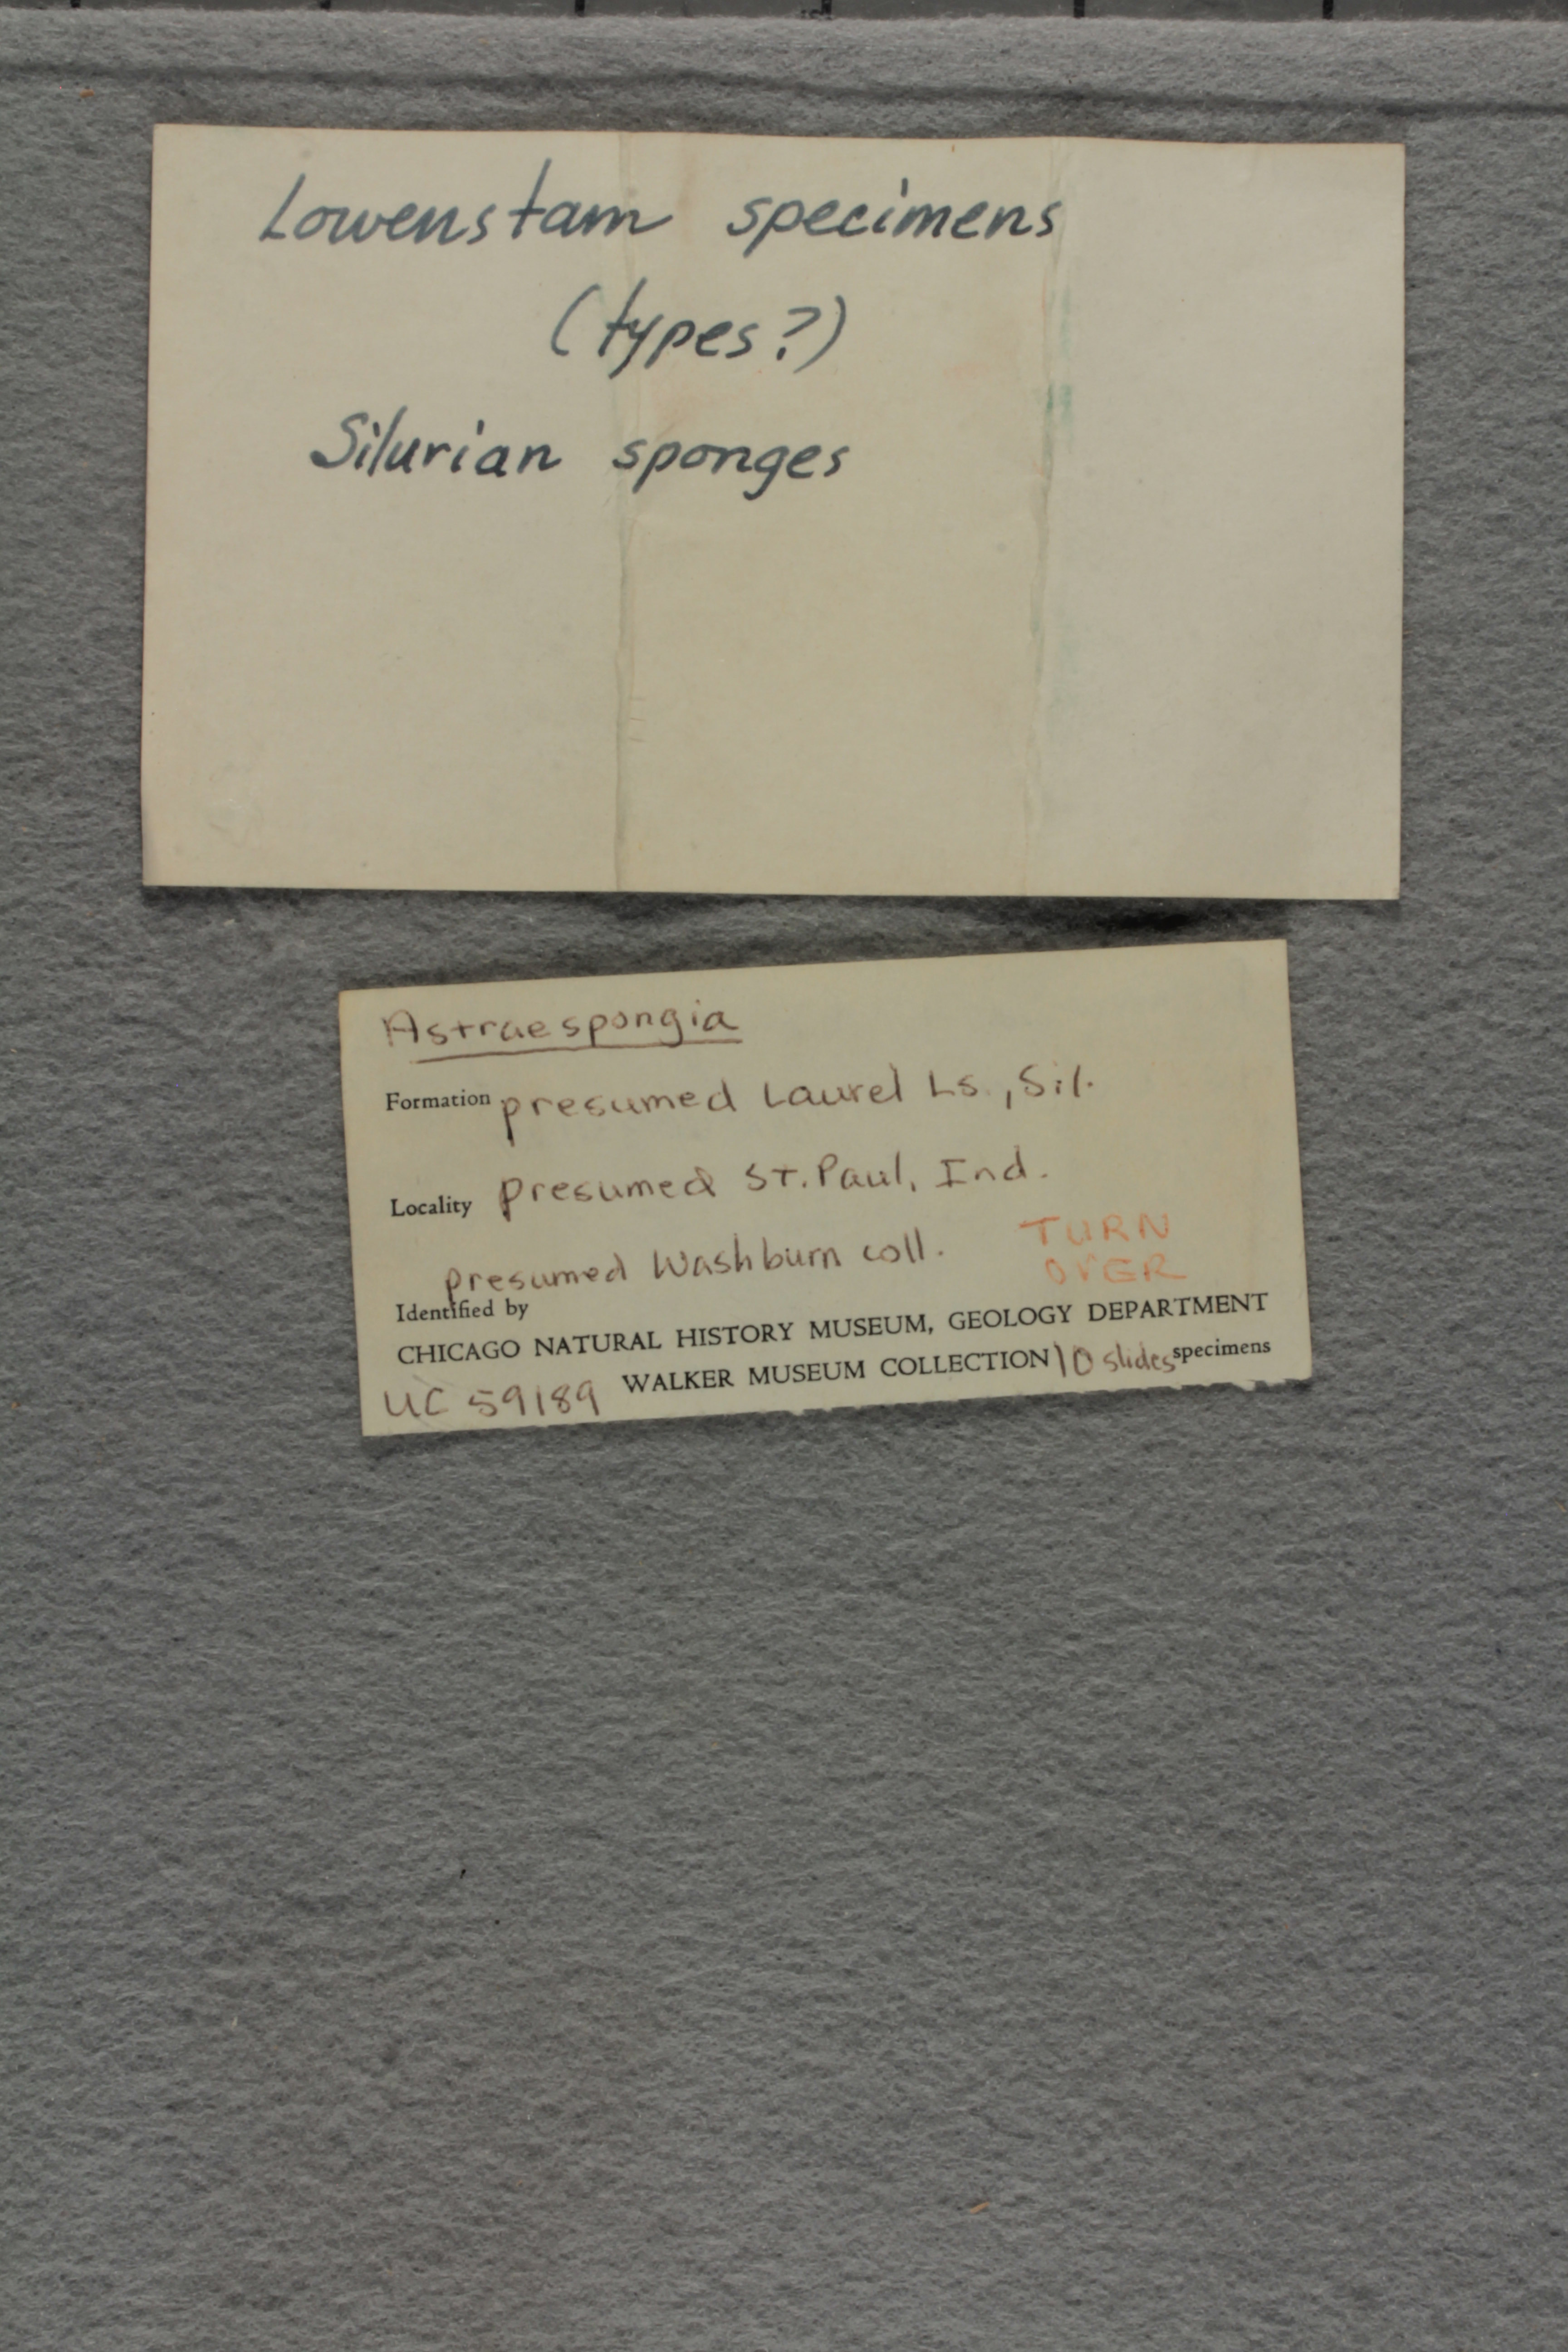 Lowenstam specimens
(types?)
Silurian sponges
Astraespongia
Formation presumed Laurel Ls., Sil.
Locality presumed St. Paul, Ind.
presumed Washburn coll. TURN
OVER
Identified by
CHICAGO NATURAL HISTORY MUSEUM, GEOLOGY DEPARTMENT
UC 59189 WALKER MUSEUM COLLECTION 10 slides specimens